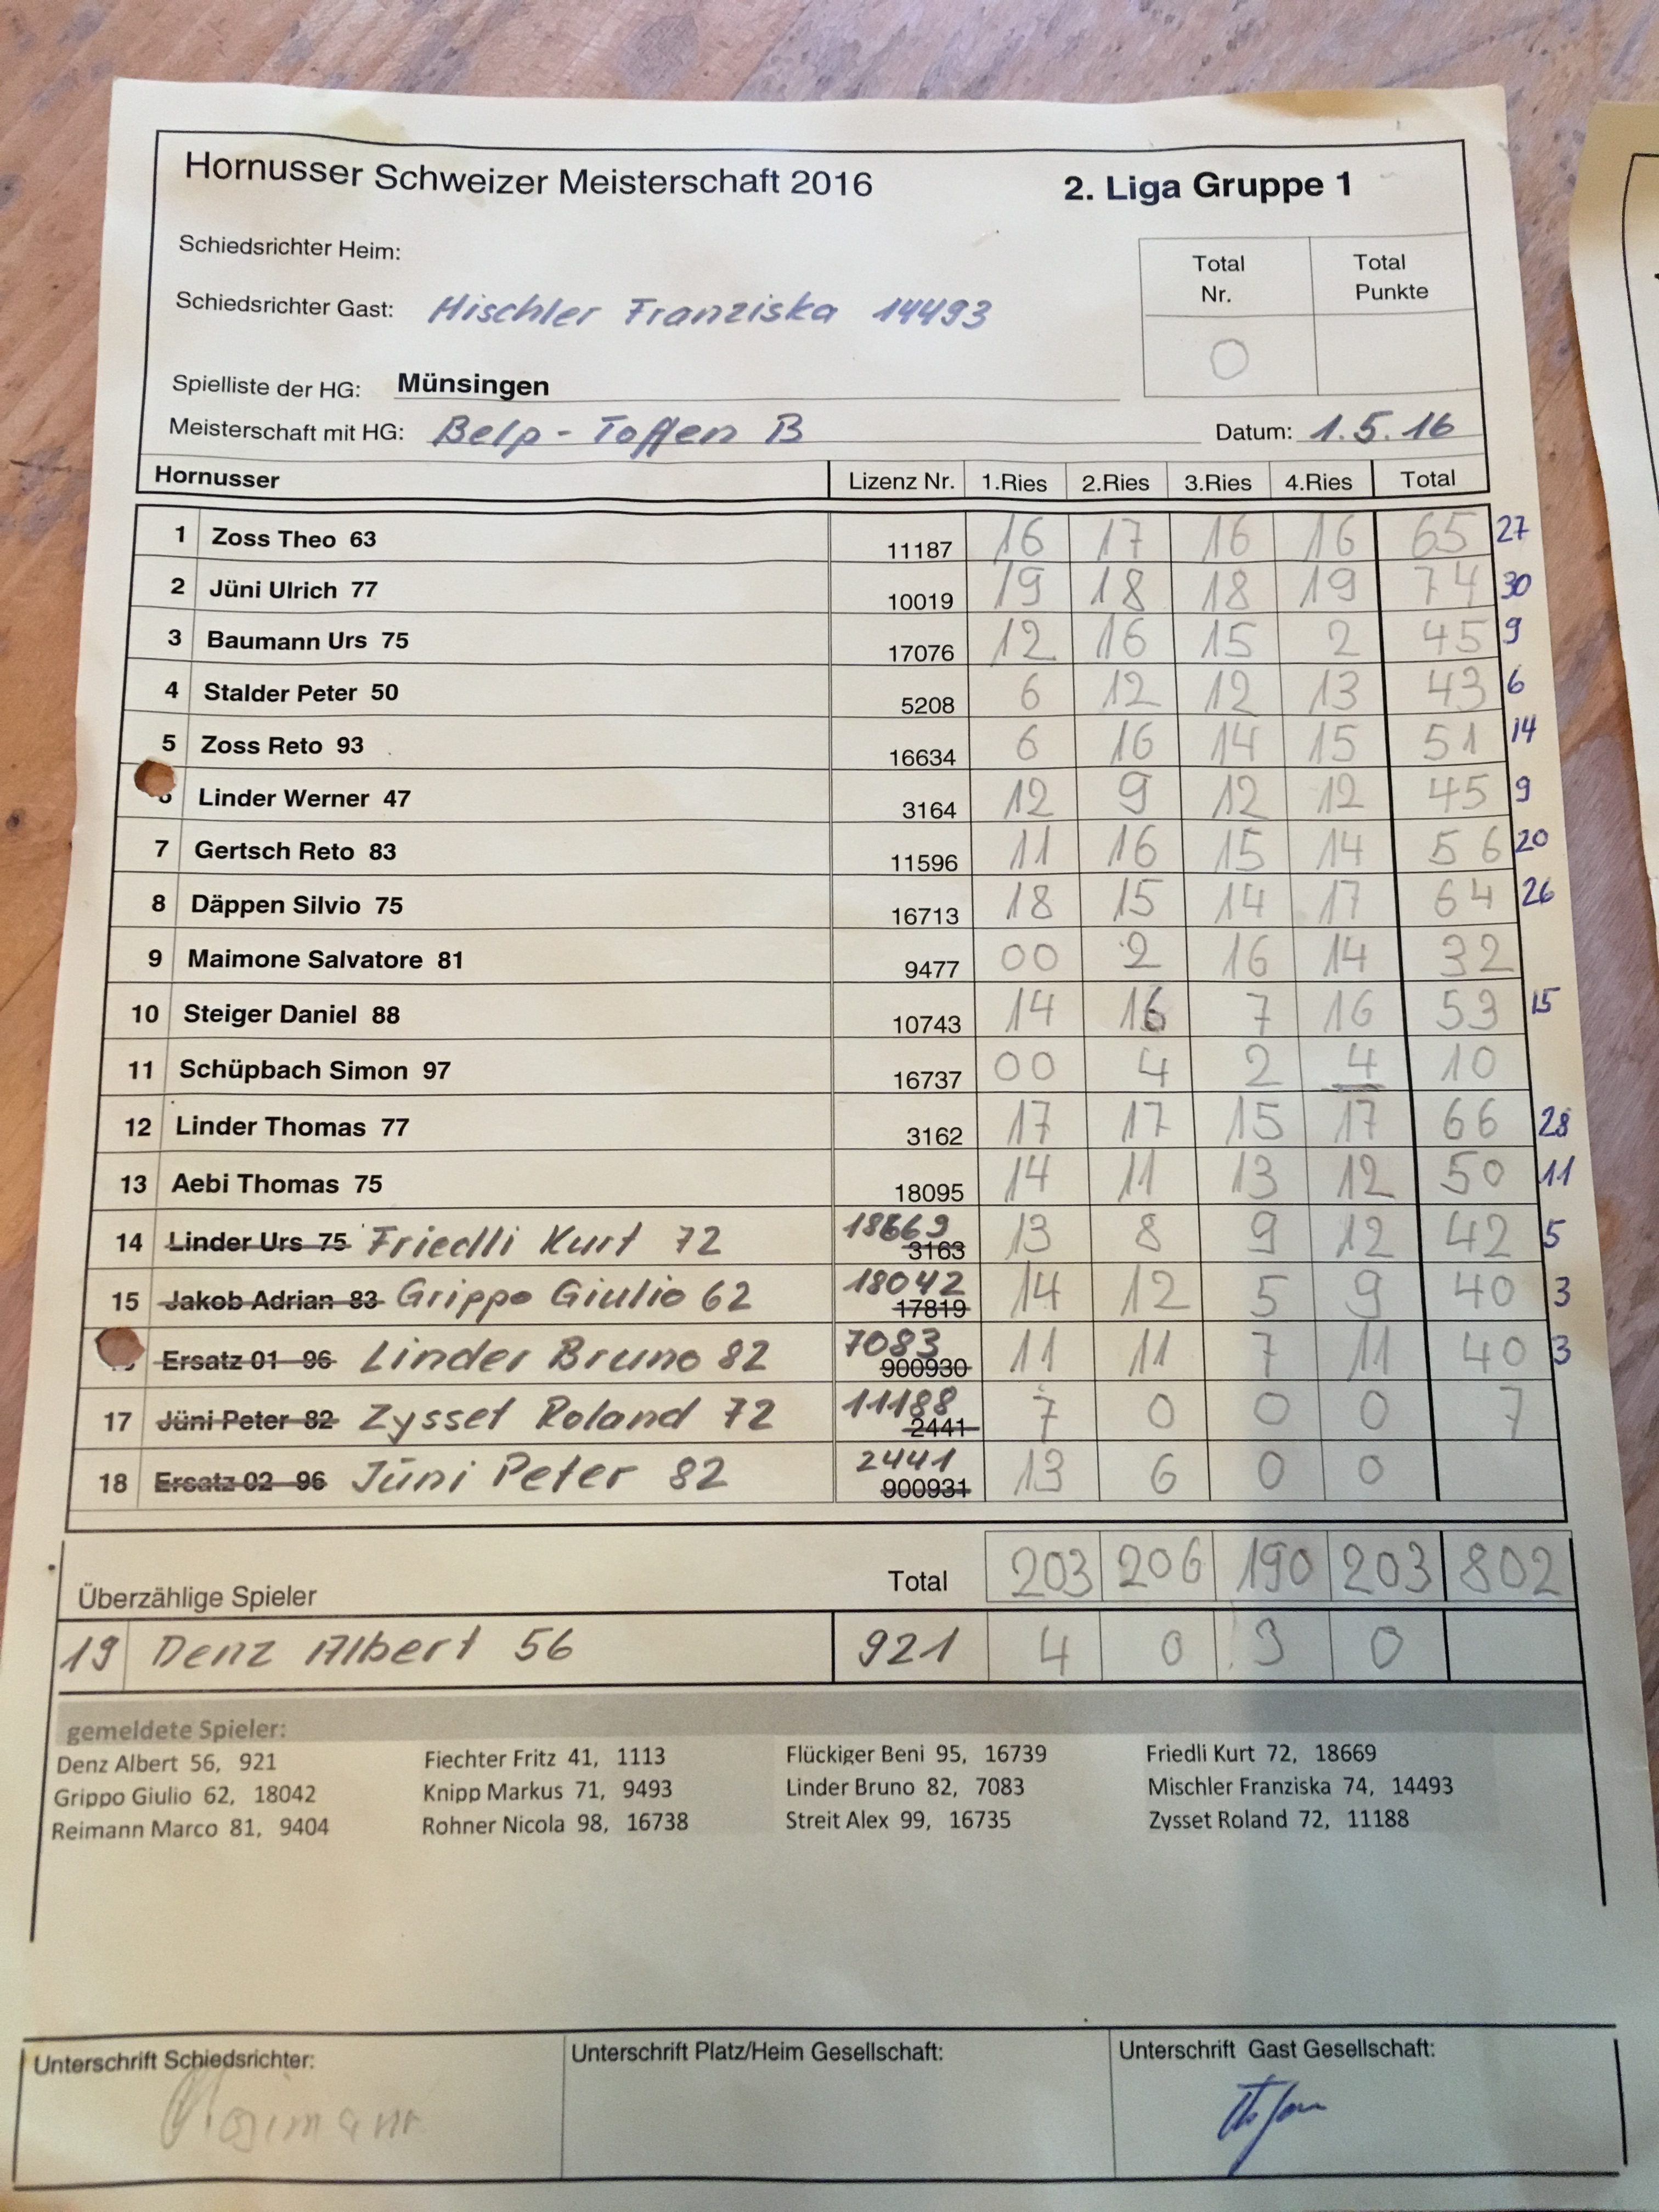 Hornusser Schweizer Meisterschaft 2016 2. Liga Gruppe 1
Schiedsrichter Heim:
Total Nr. Total Punkte
Schiedsrichter Gast: Mischler Franziska 14493
0
Spielliste der HG: Münsingen
Meisterschaft mit HG: Belp-Toffen B Datum: 1.5.16
Hornusser Lizenz Nr. 1.Ries 2.Ries 3.Ries 4.Ries Total
1 Zoss Theo 63 11187 16 17 16 16 65 27
2 Jüni Ulrich 77 10019 19 18 18 19 74 30
3 Baumann Urs 75 17076 12 16 15 2 45 9
4 Stalder Peter 50 5208 6 12 12 13 43 6
5 Zoss Reto 93 16634 6 16 14 15 51 14
Linder Werner 47 3164 12 9 12 12 45 9
7 Gertsch Reto 83 11596 11 16 15 14 56 20
8 Däppen Silvio 75 16713 18 15 14 17 64 26
9 Maimone Salvatore 81 9477 00 2 16 14 32
10 Steiger Daniel 88 10743 14 16 7 16 53 15
11 Schüpbach Simon 97 16737 00 4 2 4 10
12 Linder Thomas 77 3162 17 17 15 17 66 28
13 Aebi Thomas 75 18095 14 11 13 12 50 11
14 Linder Urs 75 Friedli Kurt 72 18669 3163 13 8 9 12 42 5
15 Jakob Adrian 83 Grippo Giulio 62 18042 17819 14 12 5 9 40 3
Ersatz 01 96 Linder Bruno 82 7083 900930 11 11 7 11 40 3
17 Jüni Peter 82 Zysset Roland 72 11188 2441 7 0 0 0 7
18 Ersatz 02 96 Jüni Peter 82 2441 900931 13 6 0 0
Überzählige Spieler Total 203 206 190 203 802
19 Denz Albert 56 921 4 0 3 0
gemeldete Spieler:
Denz Albert 56, 921 Fiechter Fritz 41, 1113 Flückiger Beni 95, 16739 Friedli Kurt 72, 18669
Grippo Giulio 62, 18042 Knipp Markus 71, 9493 Linder Bruno 82, 7083 Mischler Franziska 74, 14493
Reimann Marco 81, 9404 Rohner Nicola 98, 16738 Streit Alex 99, 16735 Zysset Roland 72, 11188
Unterschrift Schiedsrichter: Unterschrift Platz/Heim Gesellschaft: Unterschrift Gast Gesellschaft: